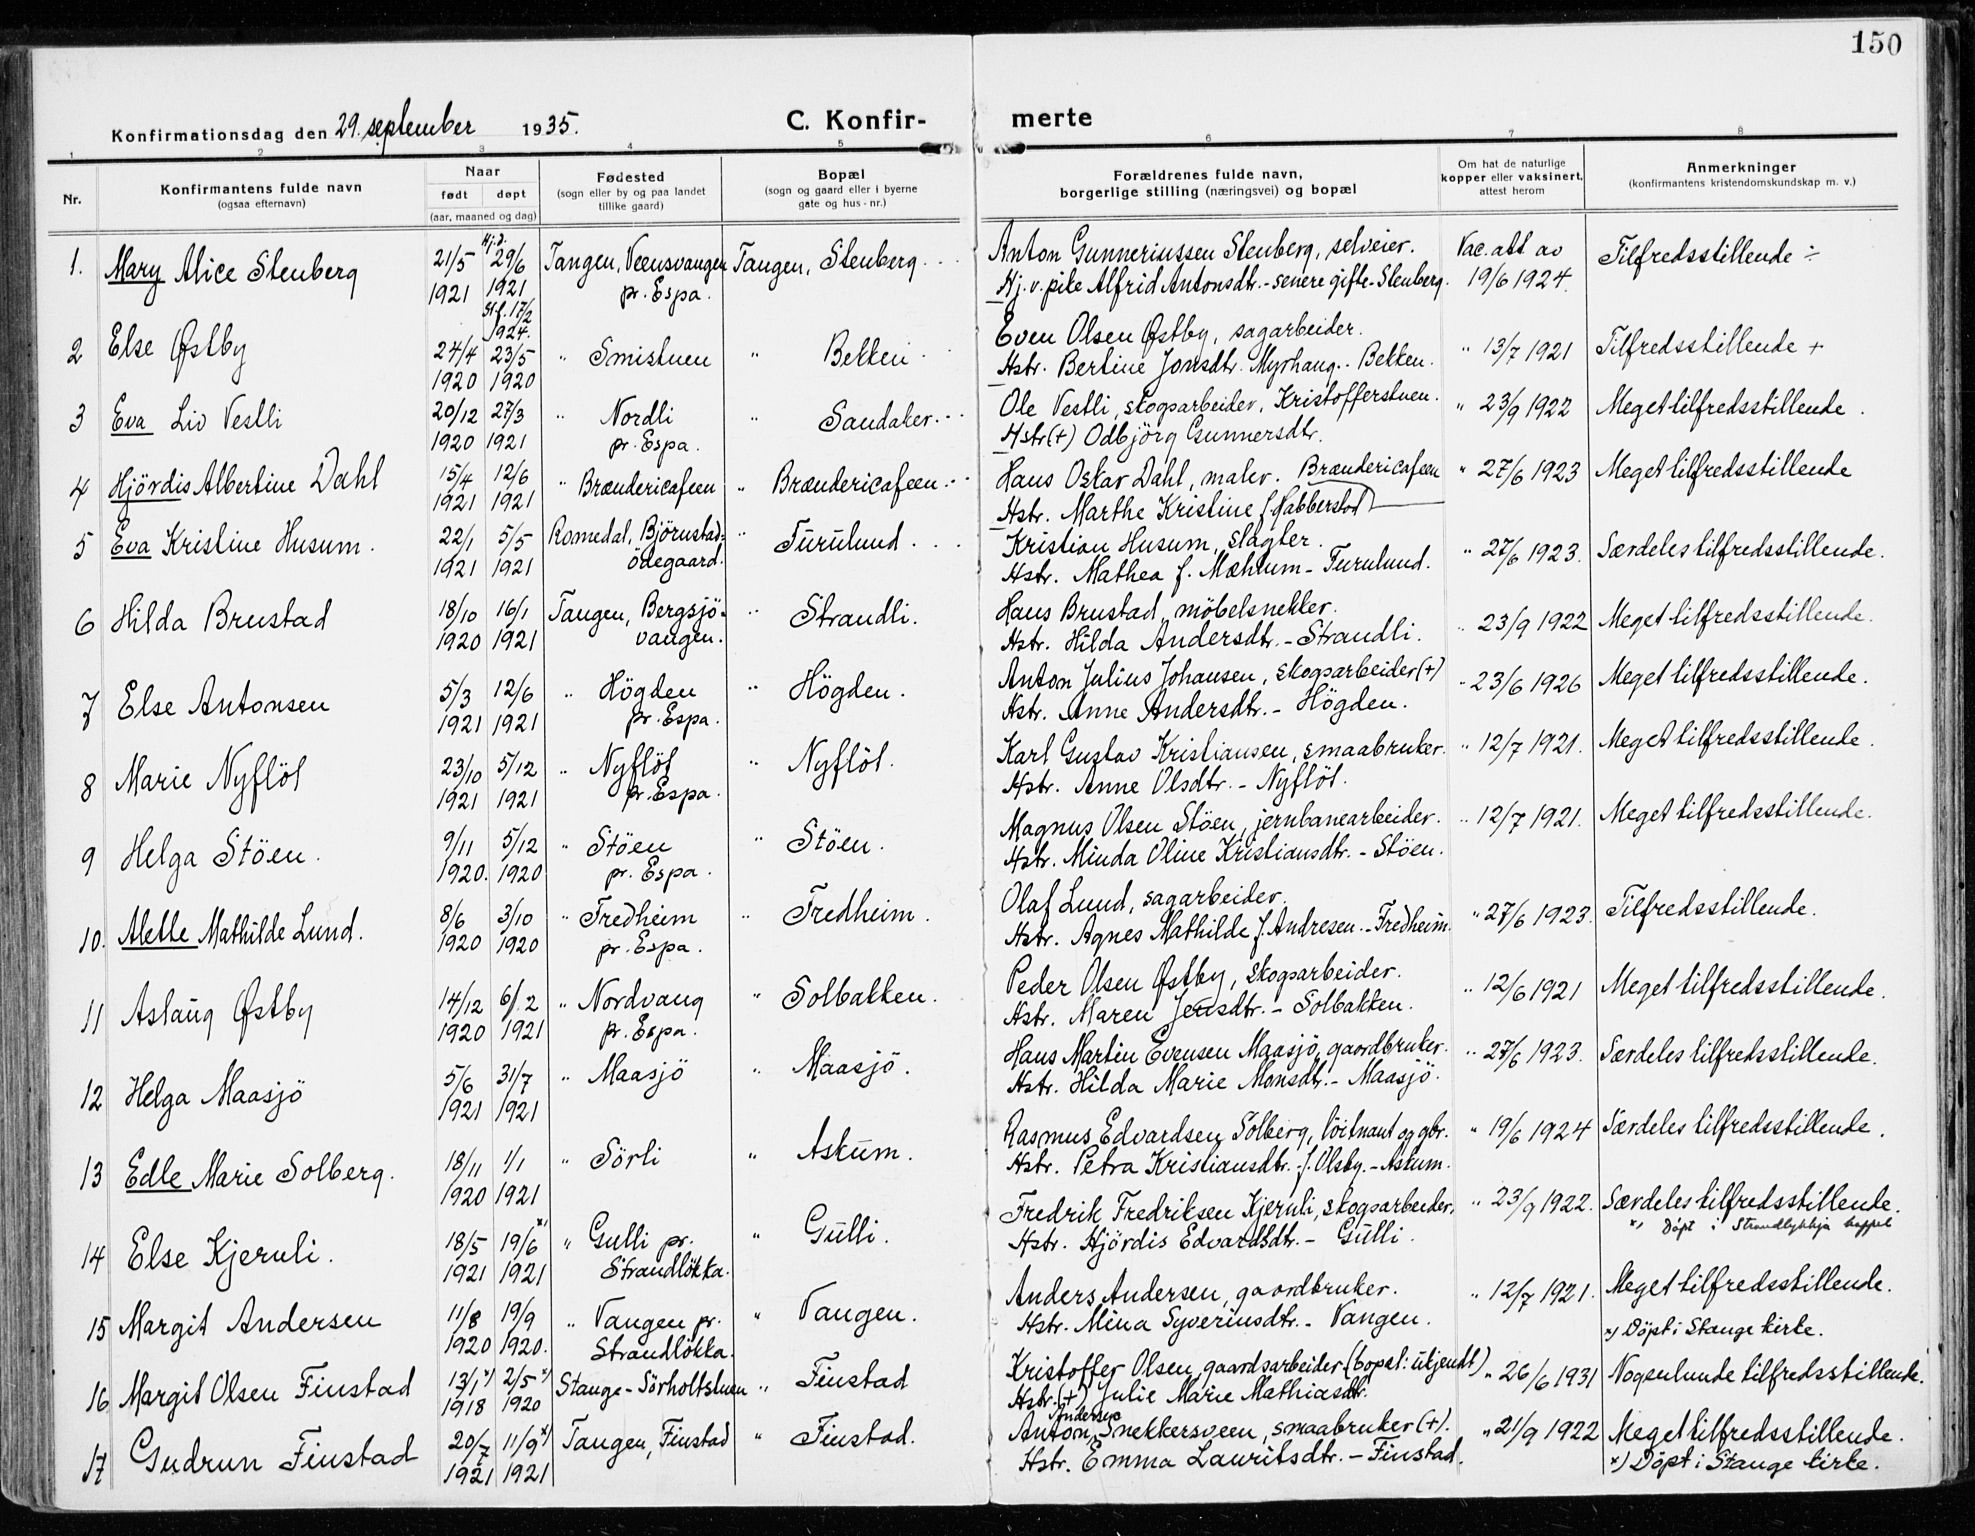 150
Konfirmationsdag den 29. september 1935.
C. Konfir-
merte
1 2 3 4 5 6 7 8
Nr.
Konfirmantens fulde navn
(ogsaa efternavn)
Naar
født døpt
(aar, maaned og dag)
Fødested
(sogn eller by og paa landet
tillike gaard)
Bopæl
(sogn og gaard eller i byerne
gate og hus-nr.)
Forældrenes fulde navn,
borgerlige stilling (næringsvei) og bopæl
Om hat de naturlige
kopper eller vaksinert,
attest herom
Anmerkninger
(konfirmantens kristendomskundskap m. v.)
1. Mary Alice Stenberg
21/5 1921
Hj.d. 29/6 1921
St f. 17/2 1924.
Tangen, Veensvangen
pr. Espa.
Tangen, Stenberg
Anton Gunneriussen Stenberg, selveier.
Hj. v. pike Alfrid Antonsdtr. - senere gifte - Stenberg.
Vac. att. av
19/6 1924.
Tilfredsstillende ÷
2 Else Østby
24/4 1920
23/5 1920
" Smistuen
" Bekken
Even Olsen Østby, sagarbeider.
Hstr. Bertine Jonsdtr. Myrhaug. - Bekken.
" 13/7 1921
Tilfredsstillende +
3 Eva Liv Vestli
20/12 1920
27/3 1921
" Nordli
pr. Espa.
" Sandaker
Ole Vestli, skogsarbeider, Kristofferstuen.
Hstr (+) Odbjörg Gunnersdtr.
" 23/9 1922
Meget tilfredsstillende.
4 Hjördis Albertine Dahl
15/4 1921
12/6 1921
" Brændericafeen
" Brændericafeen
Hans Oskar Dahl, maler. Brændericafeen
Hstr. Marthe Kristine f. Habberstad
" 27/6 1923
Meget tilfredsstillende
5 Eva Kristine Husum.
22/1 1921
5/5 1921
Romedal, Björnstad-
ödegaard.
" Furulund
Kristian Husum, slagter.
Hstr. Mathea f. Mæhlum - Furulund.
" 27/6 1923.
Særdeles tilfredsstillende.
6 Hilda Brustad
18/10 1920
16/1 1921
Tangen, Bergsjö-
vangen.
" Strandli.
Hans Brustad, möbelsnekker.
Hstr. Hilda Andersdtr. - Strandli.
" 23/9 1922
Meget tilfredsstillende.
7 Else Antonsen
5/3 1921
12/6 1921
" Högden
pr. Espa.
" Högden.
Anton Julius Johansen, skogsarbeider (+)
Hstr. Anne Andersdtr. - Högden.
" 23/6 1926
Meget tilfredsstillende.
8 Marie Nyflöt
23/10 1921
5/12 1921
" Nyflöt
pr. Espa.
" Nyflöt.
Karl Gustav Kristiansen, smaabruker.
Hstr. Anne Olsdtr. - Nyflöt.
" 12/7 1921.
Meget tilfredsstillende.
9 Helga Stöen.
9/11 1920.
5/12 1920
" Stöen
pr. Espa.
" Stöen.
Magnus Olsen Stöen, jernbanearbeider.
Hstr. Minda Oline Kristiansdtr. - Stöen.
" 12/7 1921.
Meget tilfredsstillende.
10. Alette Mathilde Lund.
8/6 1920
3/10 1920
" Fredheim
pr. Espa.
" Fredheim.
Olaf Lund, sagarbeider.
Hstr. Agnes Mathilde f. Andresen. - Fredheim.
" 27/6 1923.
Tilfredsstillende.
11 Aslaug Østby
14/12 1920
6/2 1921
" Nordvang
pr. Espa.
" Solbakken.
Peder Olsen Østby, skogsarbeider.
Hstr. Maren Jensdtr. - Solbakken.
" 12/6 1921
Meget tilfredsstillende.
12 Helga Maasjö
5/6 1921
31/7 1921
" Maasjö
" Maasjö.
Hans Martin Evensen Maasjö, gaardbruker.
Hstr. Hilda Marie Monsdtr. - Maasjö.
" 27/6 1923.
Særdeles tilfredsstillende.
13 Edle Marie Solberg.
18/11 1920
1/1 1921
" Sörli
" Askum.
Rasmus Edvardsen Solberg, löitnant og gbr.
Hstr. Petra Kristiansdtr. f. Olsby. - Askum.
" 19/6 1924
Særdeles tilfredsstillende.
14 Else Kjernli.
18/5 1921
19/6 x) 1921
" Gulli pr.
Strandlökka.
" Gulli.
Fredrik Fredriksen Kjernli, skogsarbeider.
Hstr. Hjördis Edvardsdtr. - Gulli.
" 23/9 1922.
Særdeles tilfredsstillende.
x) Döpt i Strandlykkja kappel
15 Margit Andersen
11/8 1920
19/9 1920.
" Vangen pr.
Strandlökka.
" Vangen.
Anders Andersen, gaardbruker.
Hstr. Mina Syverinsdtr. - Vangen.
" 12/7 1921.
Meget tilfredsstillende.
x) Döpt i Stange kirke.
16 Margit Olsen Finstad
13/1 x) 1918
2/5 x) 1920
Stange - Sörholtstuen
" Finstad
Kristoffer Olsen, gaardsarbeider (bopæl: ukjendt)
Hstr. (+) Julie Marie Mathiasdtr.
" 26/6 1931
Nogenlunde tilfredsstillende.
17 Gudrun Finstad
20/7 1921
11/9 x) 1921
Tangen, Finstad
" Finstad.
Andersen
Anton Snekkersveen, smaabruker (+).
Hstr. Emma Lauritsdtr. - Finstad.
" 21/9 1922
Meget tilfredsstillende.
x) Döpt i Stange kirke.